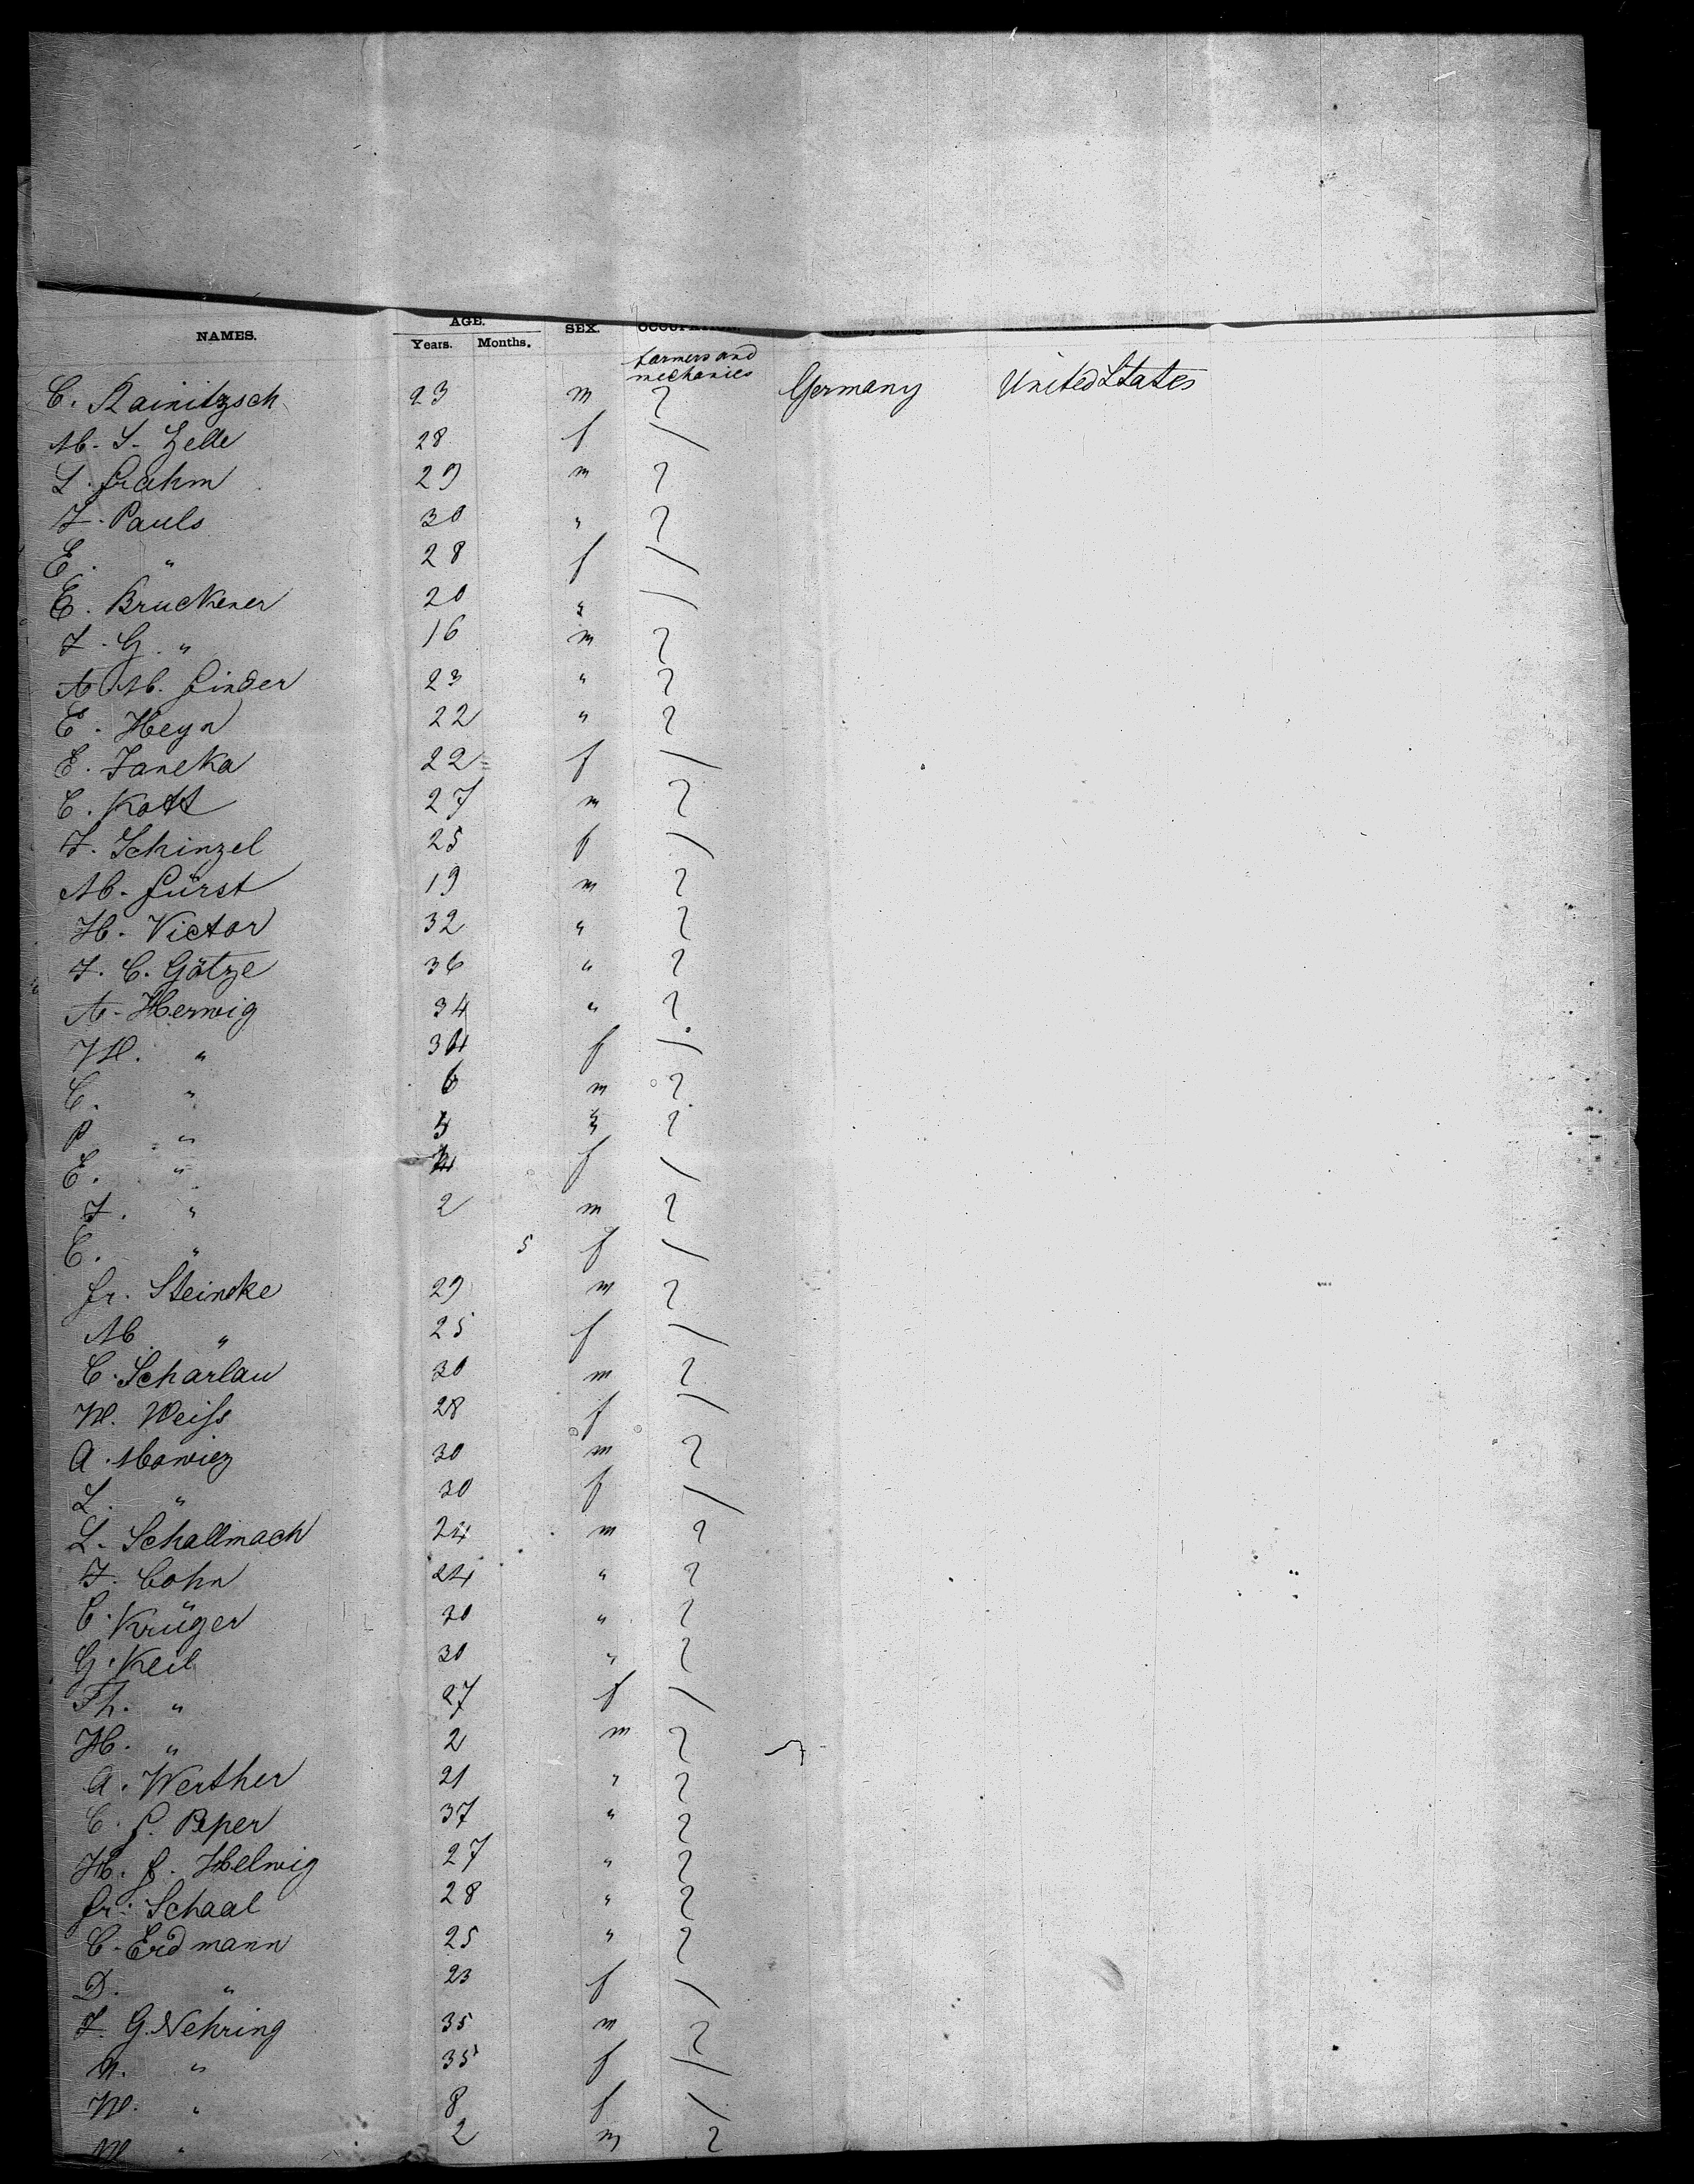 AGE.
NAMES. Years. Months. SEX. OCCUPATION.
farmers and
mechanics
C. Rainitzsch 23 m Germany United States
M. S. Zelle 28 f
L. Frahm 29 m
J. Pauls 30 "
E. " 28 f
E. Bruckener 20 "
J. G. " 16 m
A. M. Finder 23 "
E. Heyn 22 "
E. Janeka 22 f
C. Kott 27 m
J. Schinzel 25 f
M. Fürst 19 m
H. Victor 32 "
J. C. Götze 36 "
A. Herwig 34 "
W. " 34 f
C. " 6 m
P. " "
E. " 4 f
J. " 2 m
C. " 5 f
Fr. Steincke 29 m
M. " 25 f
C. Scharlau 30 m
W. Weiſs 28 f
A. Mowicz 30 m
L. " 30 f
L. Schallmach 24 m
J. Cohn 24 "
C. Krüger 30 "
G. Keil 30 "
Th. " 27 f
H. " 2 m
A. Werther 21 "
C. F. Peper 37 "
H. F. Helwig 27 "
Fr. Schaal 28 "
C. Erdmann 25 "
D. " 23 f
J. G. Nehring 35 m
N. " 35 f
W. " 8 f
W. " 2 m